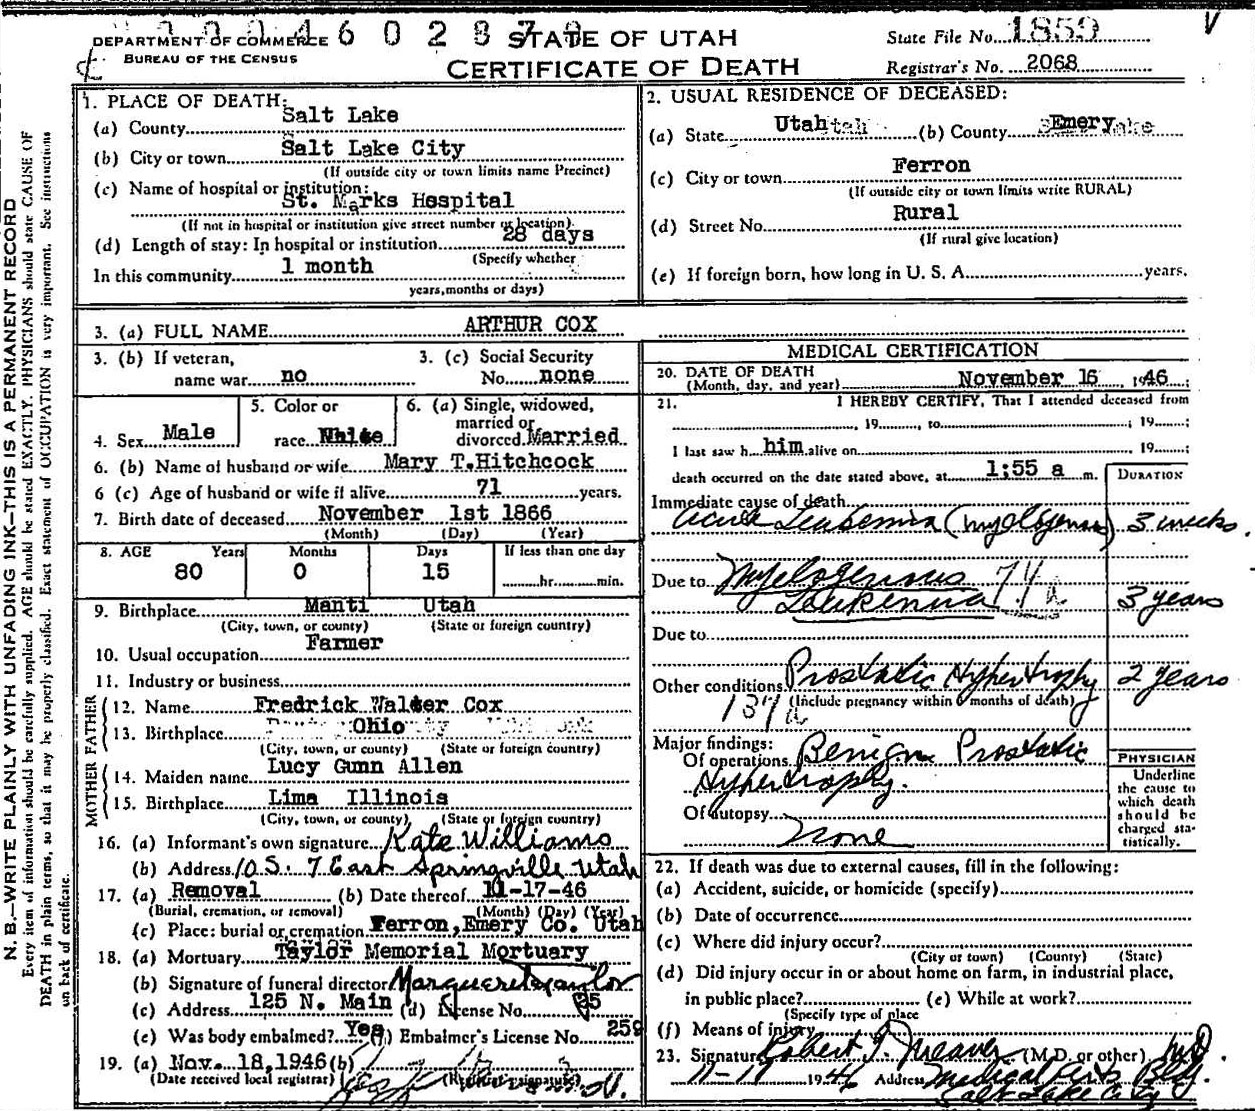 DEPARTMENT OF COMMERCE
BUREAU OF THE CENSUS
STATE OF UTAH
CERTIFICATE OF DEATH
State File No. 1859
Registrar's No. 2068
N. B.—WRITE PLAINLY WITH UNFADING INK—THIS IS A PERMANENT RECORD
Every item of information should be carefully supplied. AGE should be stated EXACTLY. PHYSICIANS should state CAUSE OF
DEATH in plain terms, so that it may be properly classified. Exact statement of OCCUPATION is very important. See instructions
on back of certificate.
1. PLACE OF DEATH:
(a) County Salt Lake
(b) City or town Salt Lake City
(If outside city or town limits name Precinct)
(c) Name of hospital or institution:
St. Marks Hospital
(If not in hospital or institution give street number or location)
(d) Length of stay: In hospital or institution 28 days
(Specify whether
In this community 1 month
years, months or days)
2. USUAL RESIDENCE OF DECEASED:
(a) State Utah (b) County Emery
(c) City or town Ferron
(If outside city or town limits write RURAL)
(d) Street No. Rural
(If rural give location)
(e) If foreign born, how long in U. S. A. years.
3. (a) FULL NAME ARTHUR COX
3. (b) If veteran, name war no
3. (c) Social Security No. none
4. Sex Male
5. Color or race White
6. (a) Single, widowed, married or divorced Married
6. (b) Name of husband or wife Mary T.Hitchcock
6 (c) Age of husband or wife if alive 71 years.
7. Birth date of deceased November 1st 1866
(Month) (Day) (Year)
8. AGE Years Months Days If less than one day
80 0 15 hr. min.
9. Birthplace Manti Utah
(City, town, or county) (State or foreign country)
10. Usual occupation Farmer
11. Industry or business
FATHER
12. Name Fredrick Walter Cox
13. Birthplace Ohio
(City, town, or county) (State or foreign country)
MOTHER
14. Maiden name Lucy Gunn Allen
15. Birthplace Lima Illinois
(City, town, or county) (State or foreign country)
16. (a) Informant's own signature Kate Williams
(b) Address 10 S. 7 East Springville Utah
17. (a) Removal (b) Date thereof 11-17-46
(Burial, cremation, or removal) (Month) (Day) (Year)
(c) Place: burial or cremation Ferron, Emery Co. Utah
18. (a) Mortuary Taylor Memorial Mortuary
(b) Signature of funeral director Marguerite Taylor
(c) Address 125 N. Main (d) License No.
(e) Was body embalmed? Yes (f) Embalmer's License No. 259
19. (a) Nov. 18,1946 (b)
(Date received local registrar) (Registrar's signature)
MEDICAL CERTIFICATION
20. DATE OF DEATH
(Month, day, and year) November 16 1946
21. I HEREBY CERTIFY, That I attended deceased from
, 19 , to ; 19 ;
I last saw h him alive on 19 ;
death occurred on the date stated above, at 1:55 a m.
DURATION
Immediate cause of death
Acute Leukemia (myelogenous) 3 weeks.
Due to Myelogenous
Leukemia 74a 3 years
Due to
Other conditions Prostatic Hypertrophy 2 years
137a (Include pregnancy within 6 months of death)
Major findings:
Of operations Benign Prostatic
Hypertrophy.
Of autopsy
None
PHYSICIAN
Underline
the cause to
which death
should be
charged sta-
tistically.
22. If death was due to external causes, fill in the following:
(a) Accident, suicide, or homicide (specify)
(b) Date of occurrence
(c) Where did injury occur?
(City or town) (County) (State)
(d) Did injury occur in or about home on farm, in industrial place,
in public place? (e) While at work?
(Specify type of place
(f) Means of injury
23. Signature Robert (M.D. or other) MD.
11-17 1946 Address Medical Arts Bldg.
Salt Lake City